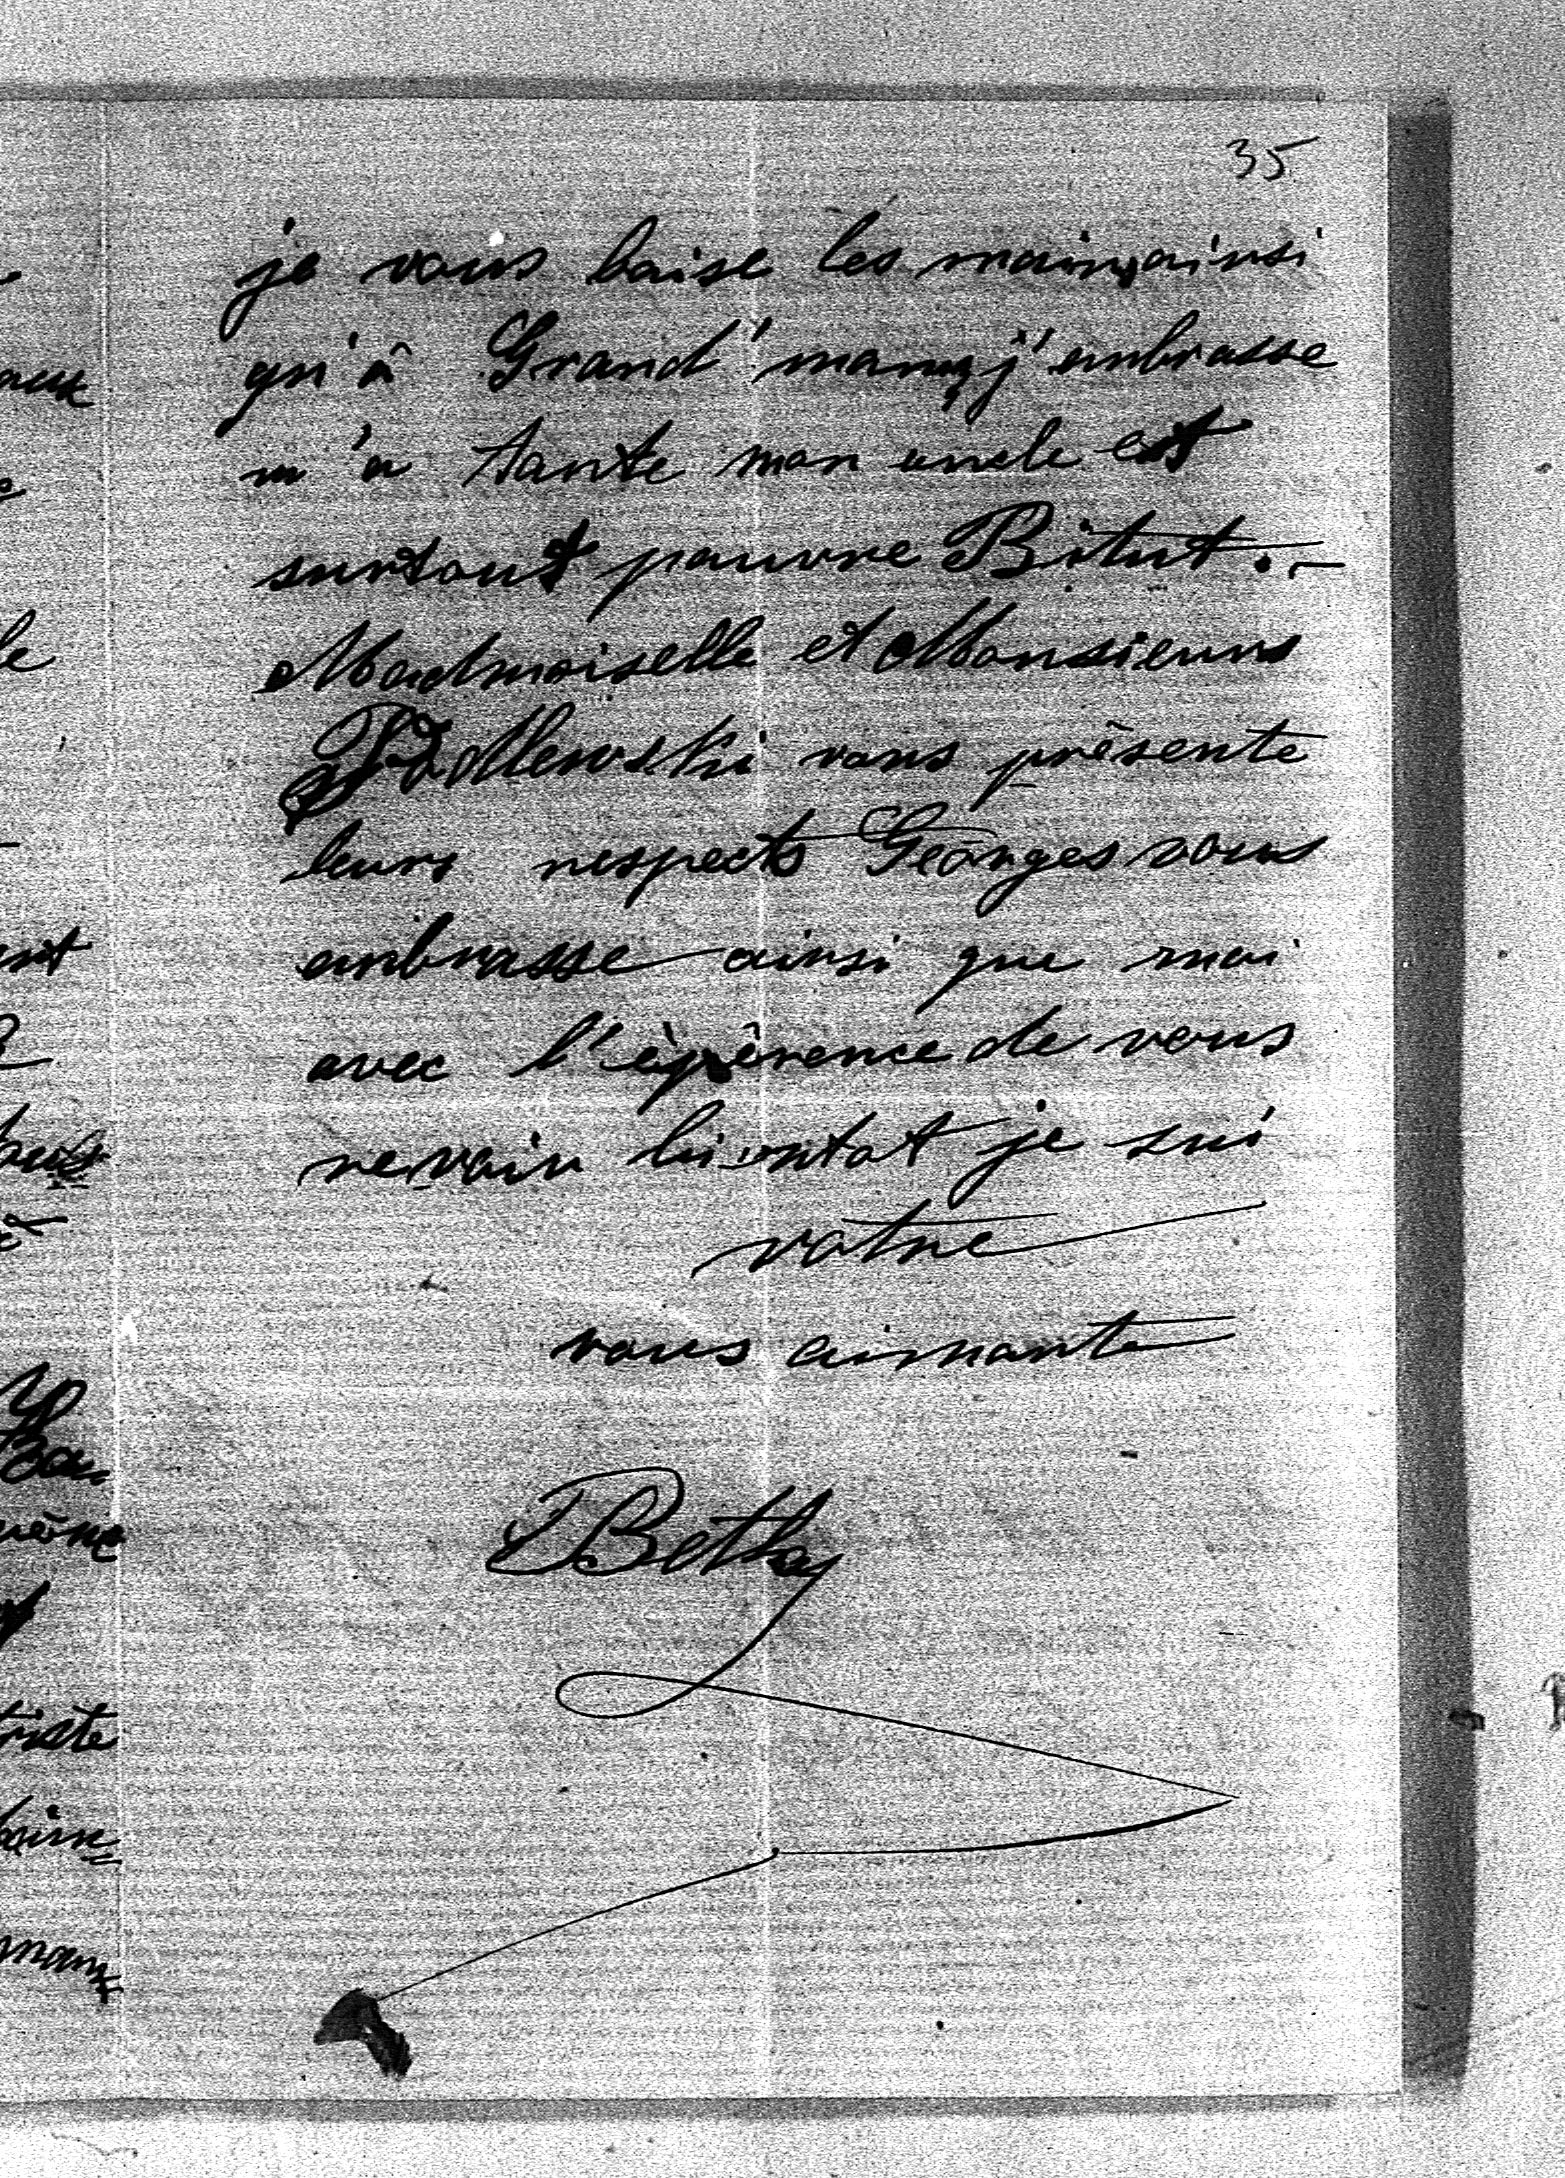 35
je vous baise les mains, ainsi
qu'à Grand'maman, j'embrasse
m'a tante mon uncle est
surtout pauvre Bitut.-
Madmoiselle et Monsieurs
vous présente
leurs respects Georges vous
embrasse ainsi que moi
avec l'èpèrence de vous
revoir bientot je sui
votre
vous aimante
Betty